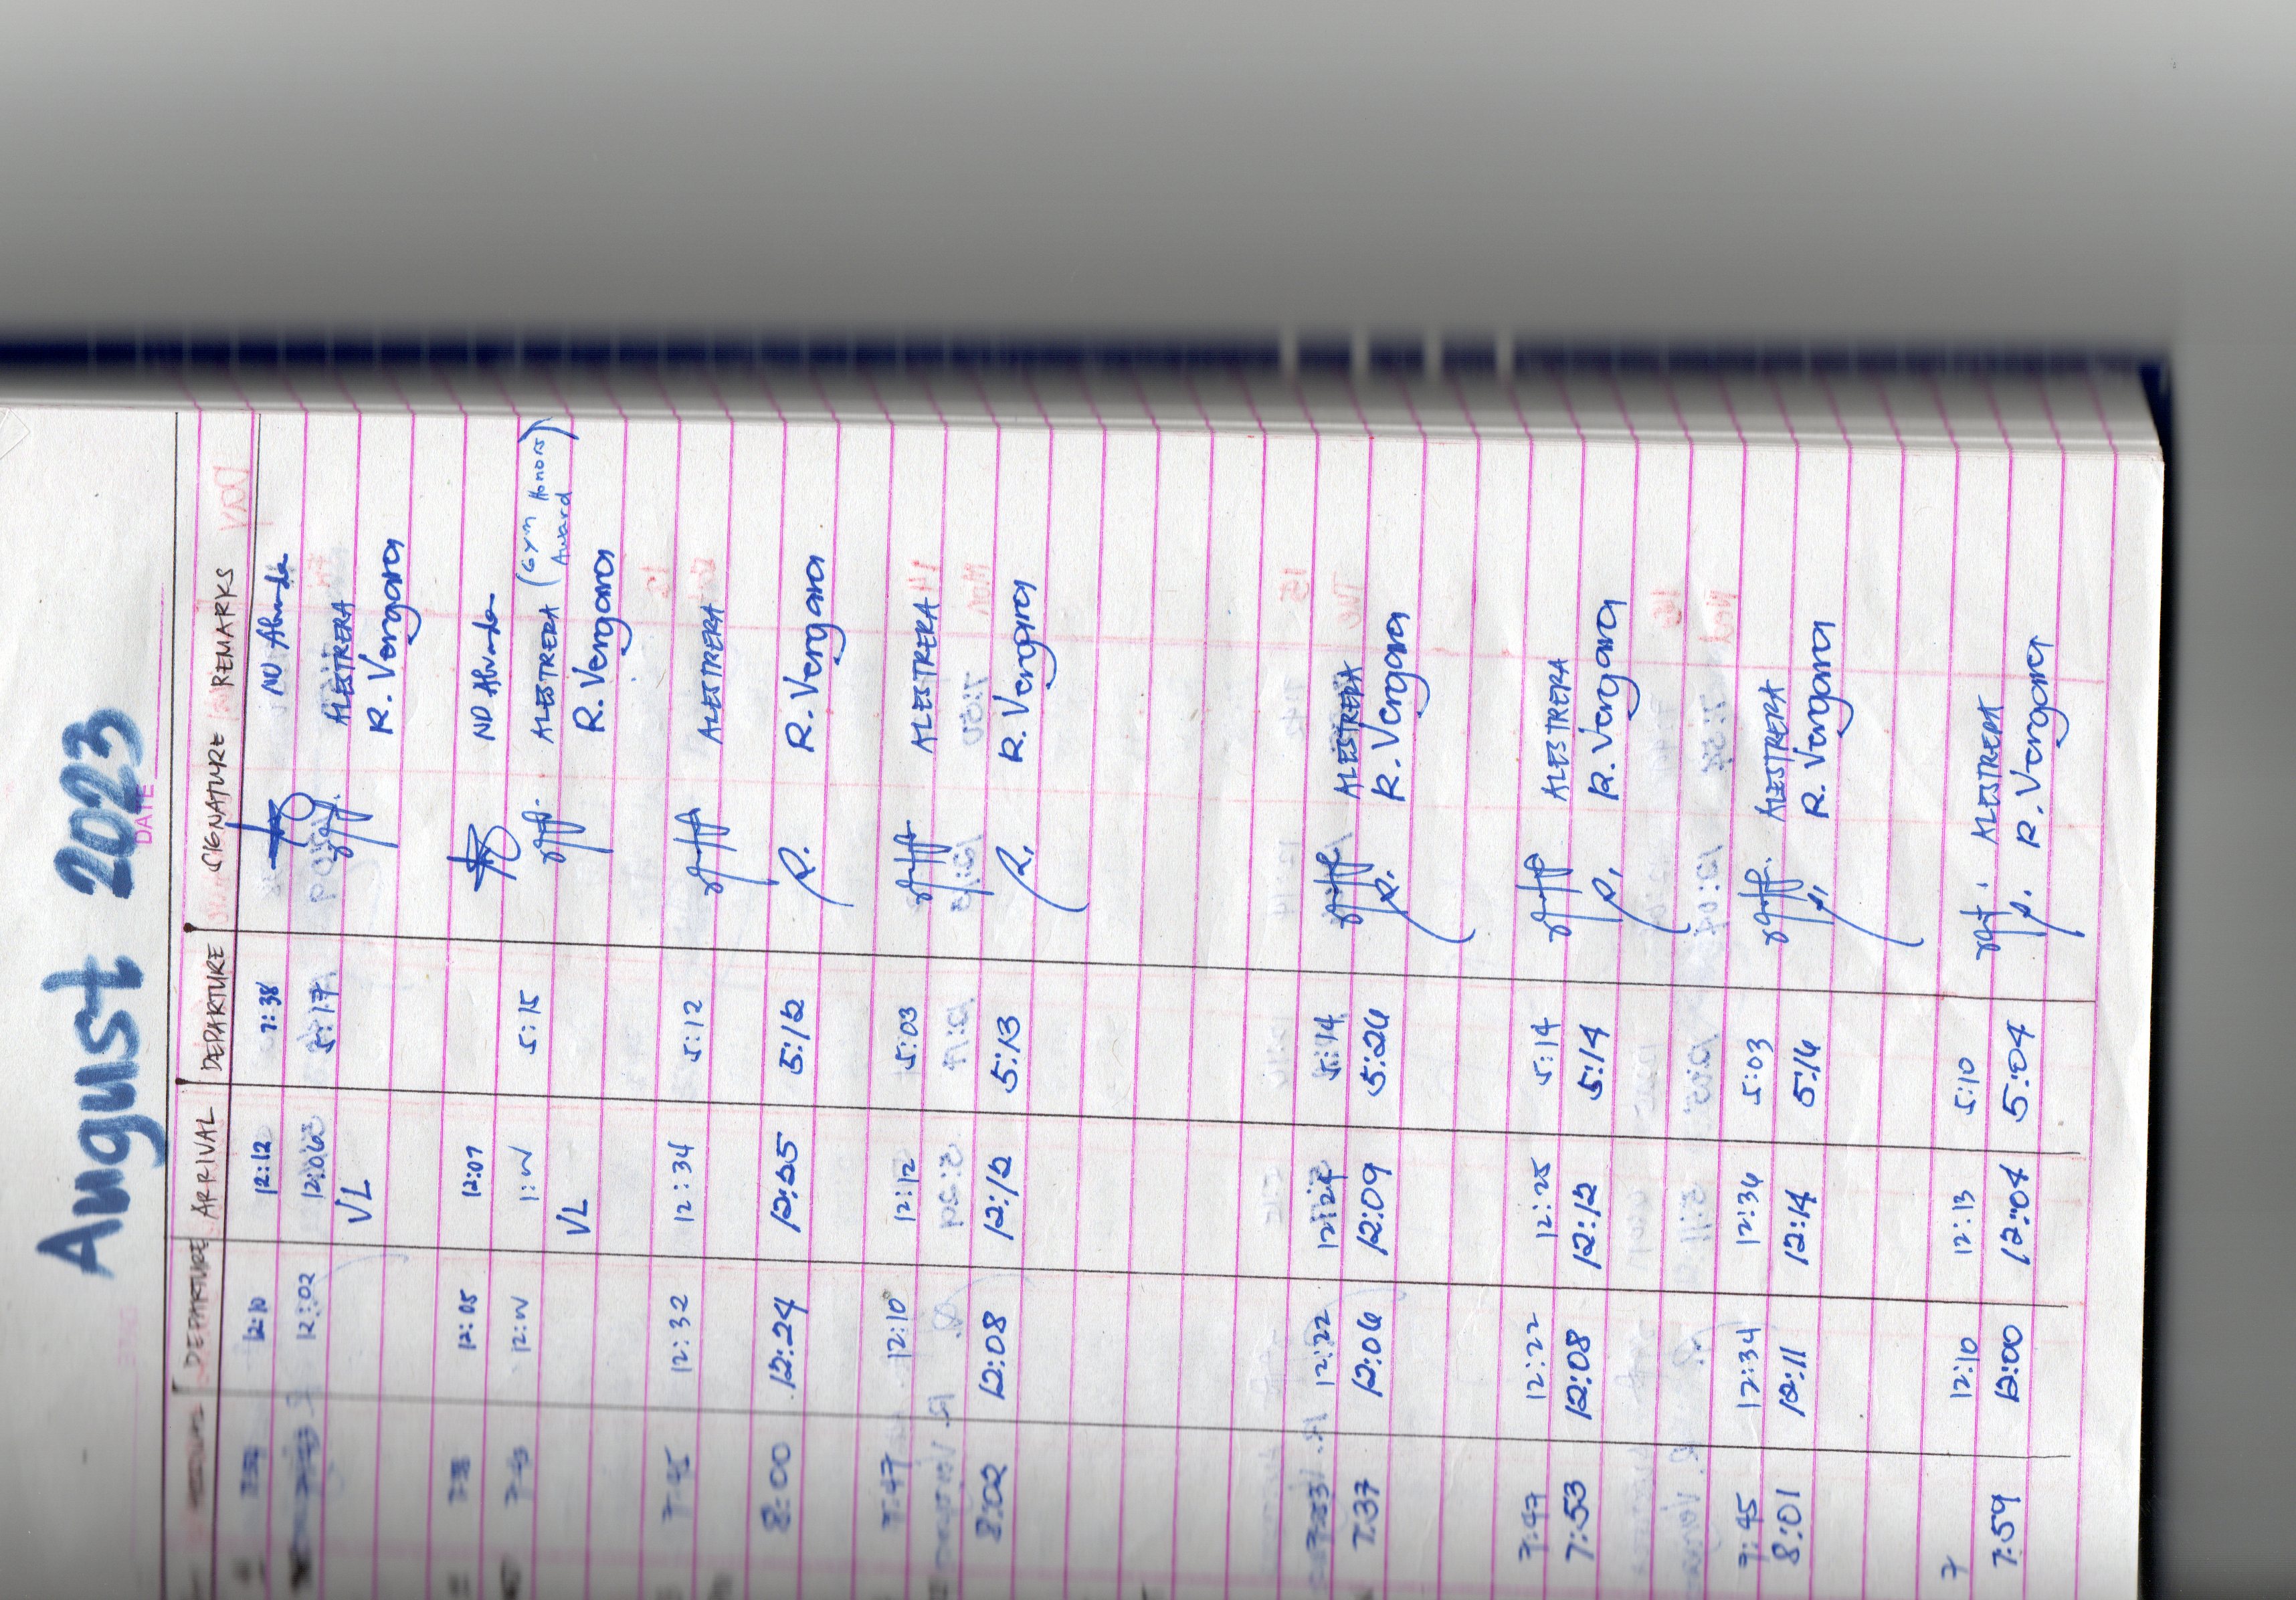 August 2023
DATE
DEPARTURE ARRIVAL DEPARTURE SIGNATURE REMARKS
12:10 12:12 7:38 ND
12:02 12:03 5:17 ALESTRERA
VL R. Vergara
12:05 12:07 ND
5:15 ALESTRERA (Gym Honors Award)
VL R. Vergara
7:45 12:32 12:34 5:12 ALESTRERA
8:00 12:24 12:25 5:12 R. R. Vergara
7:47 12:10 12:12 5:03 ALESTRERA
8:02 12:08 12:12 5:13 R. R. Vergara
12:22 12:24 5:14 ALESTRERA
7:37 12:06 12:09 5:26 R. R. Vergara
7:47 12:22 12:25 5:14 ALESTRERA
7:53 12:08 12:12 5:14 R. R. Vergara
7:45 12:34 12:36 5:03 ALESTRERA
8:01 12:11 12:14 5:16 R. Vergara
7 12:10 12:13 5:10 ALESTRERA
7:59 12:00 12:04 5:04 R. R. Vergara